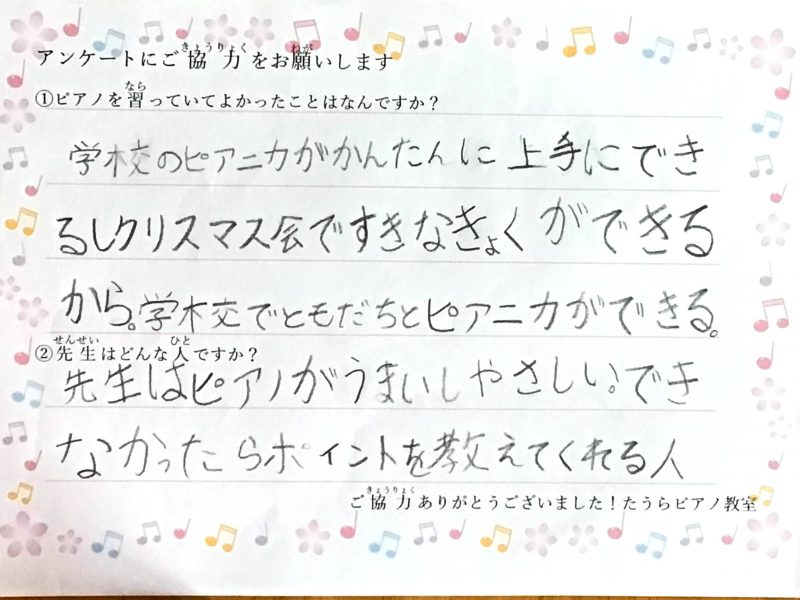 アンケートにご協力をお願いします
①ピアノを習っていてよかったことはなんですか？
学校のピアニカがかんたんに上手にでき
るしクリスマス会ですきなきょくができる
から。学校でともだちとピアニカができる。
②先生はどんな人ですか？
先生はピアノがうまいしやさしい。でき
なかったらポイントを教えてくれる人
ご協力ありがとうございました！たうらピアノ教室